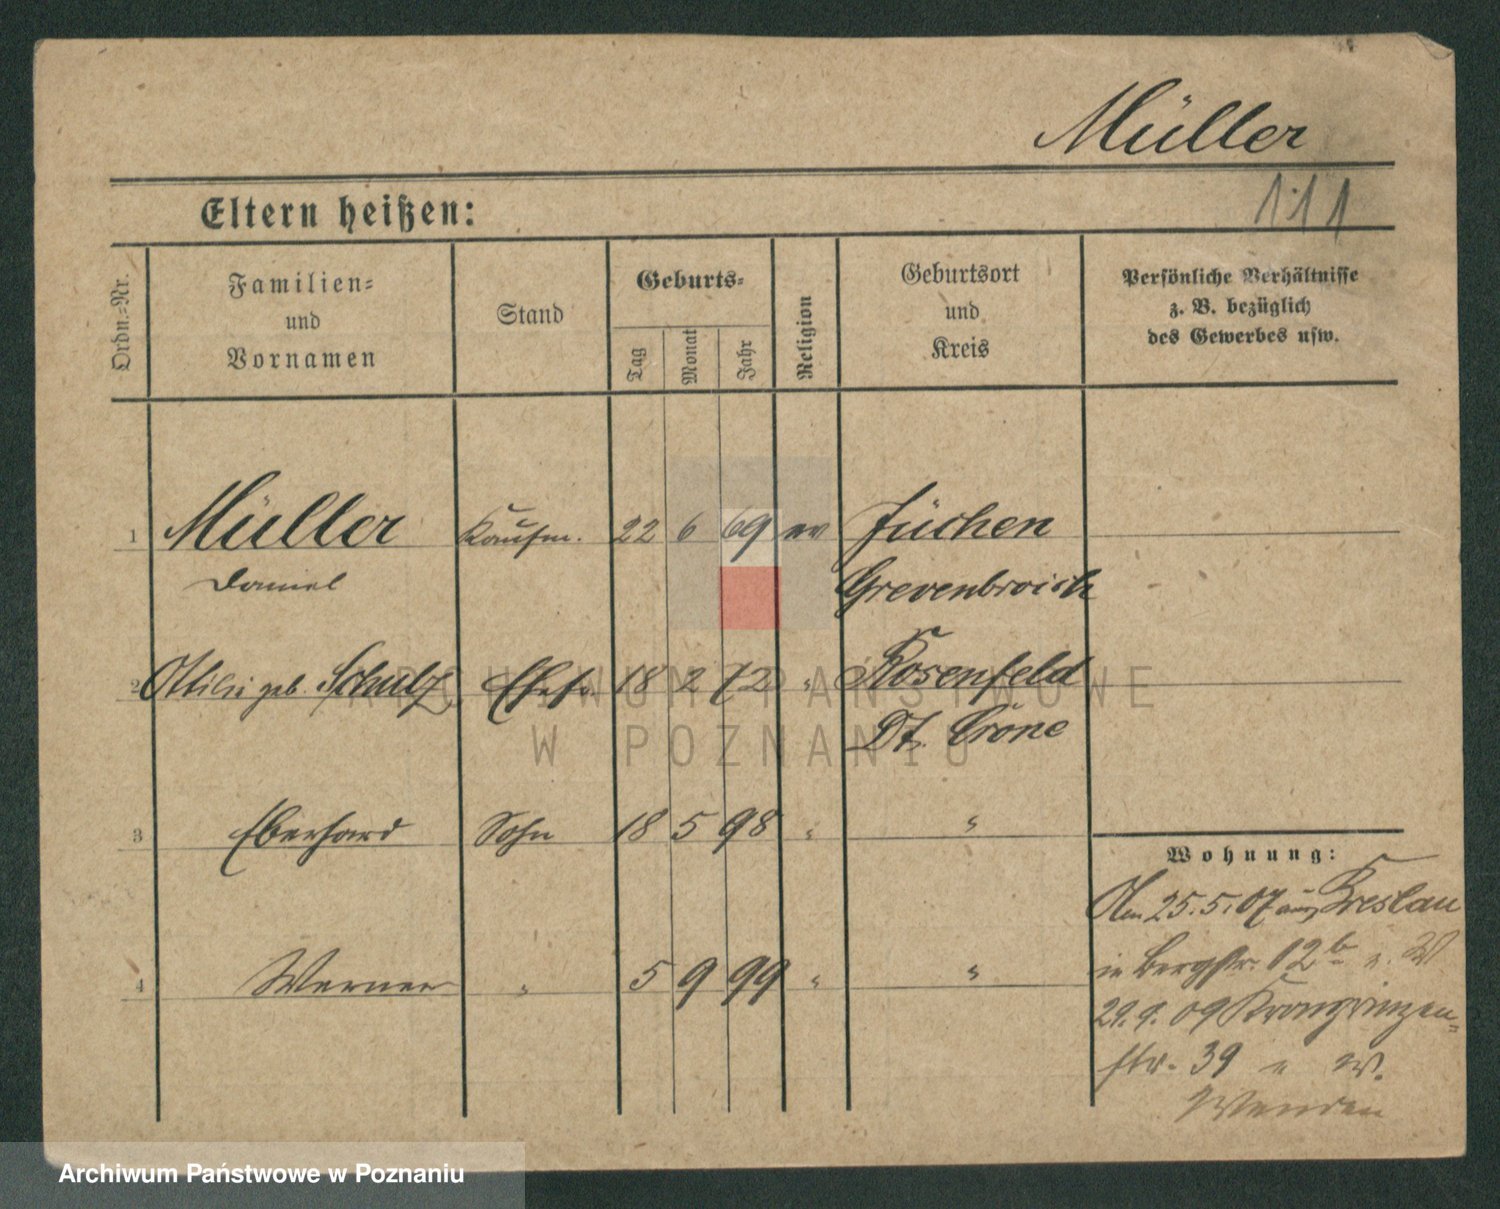 Müller
111
Eltern heißen:
Ordn.-Nr.
Familien-
und
Vornamen
Stand
Geburts-
Tag
Monat
Jahr
Religion
Geburtsort
und
Kreis
Persönliche Verhältnisse
z. B. bezüglich
des Gewerbes usw.
1 Müller Kaufm. 22 6 69 ev Jüchen
Daniel Grevenbroich
2 geb. Schulz Ehefr. 18 2 72 " Rosenfeld
Dt. Crone
3 Eberhard Sohn 18 5 98 " "
4 Werner " 5 9 99 " "
Wohnung:
Am 25.5.07 aus Breslau
in Bergstr. 12b
29.9.09 Kronprinzen-
str. 39
ARCHIWUM PAŃSTWOWE
W POZNANIU
Archiwum Państwowe w Poznaniu